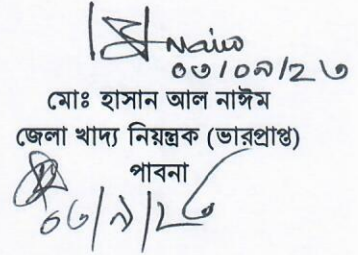 Naim
০৩/০৯/২৩
মোঃ হাসান আল নাঈম
জেলা খাদ্য নিয়ন্ত্রক (ভারপ্রাপ্ত)
পাবনা
০৩/৯/২৩